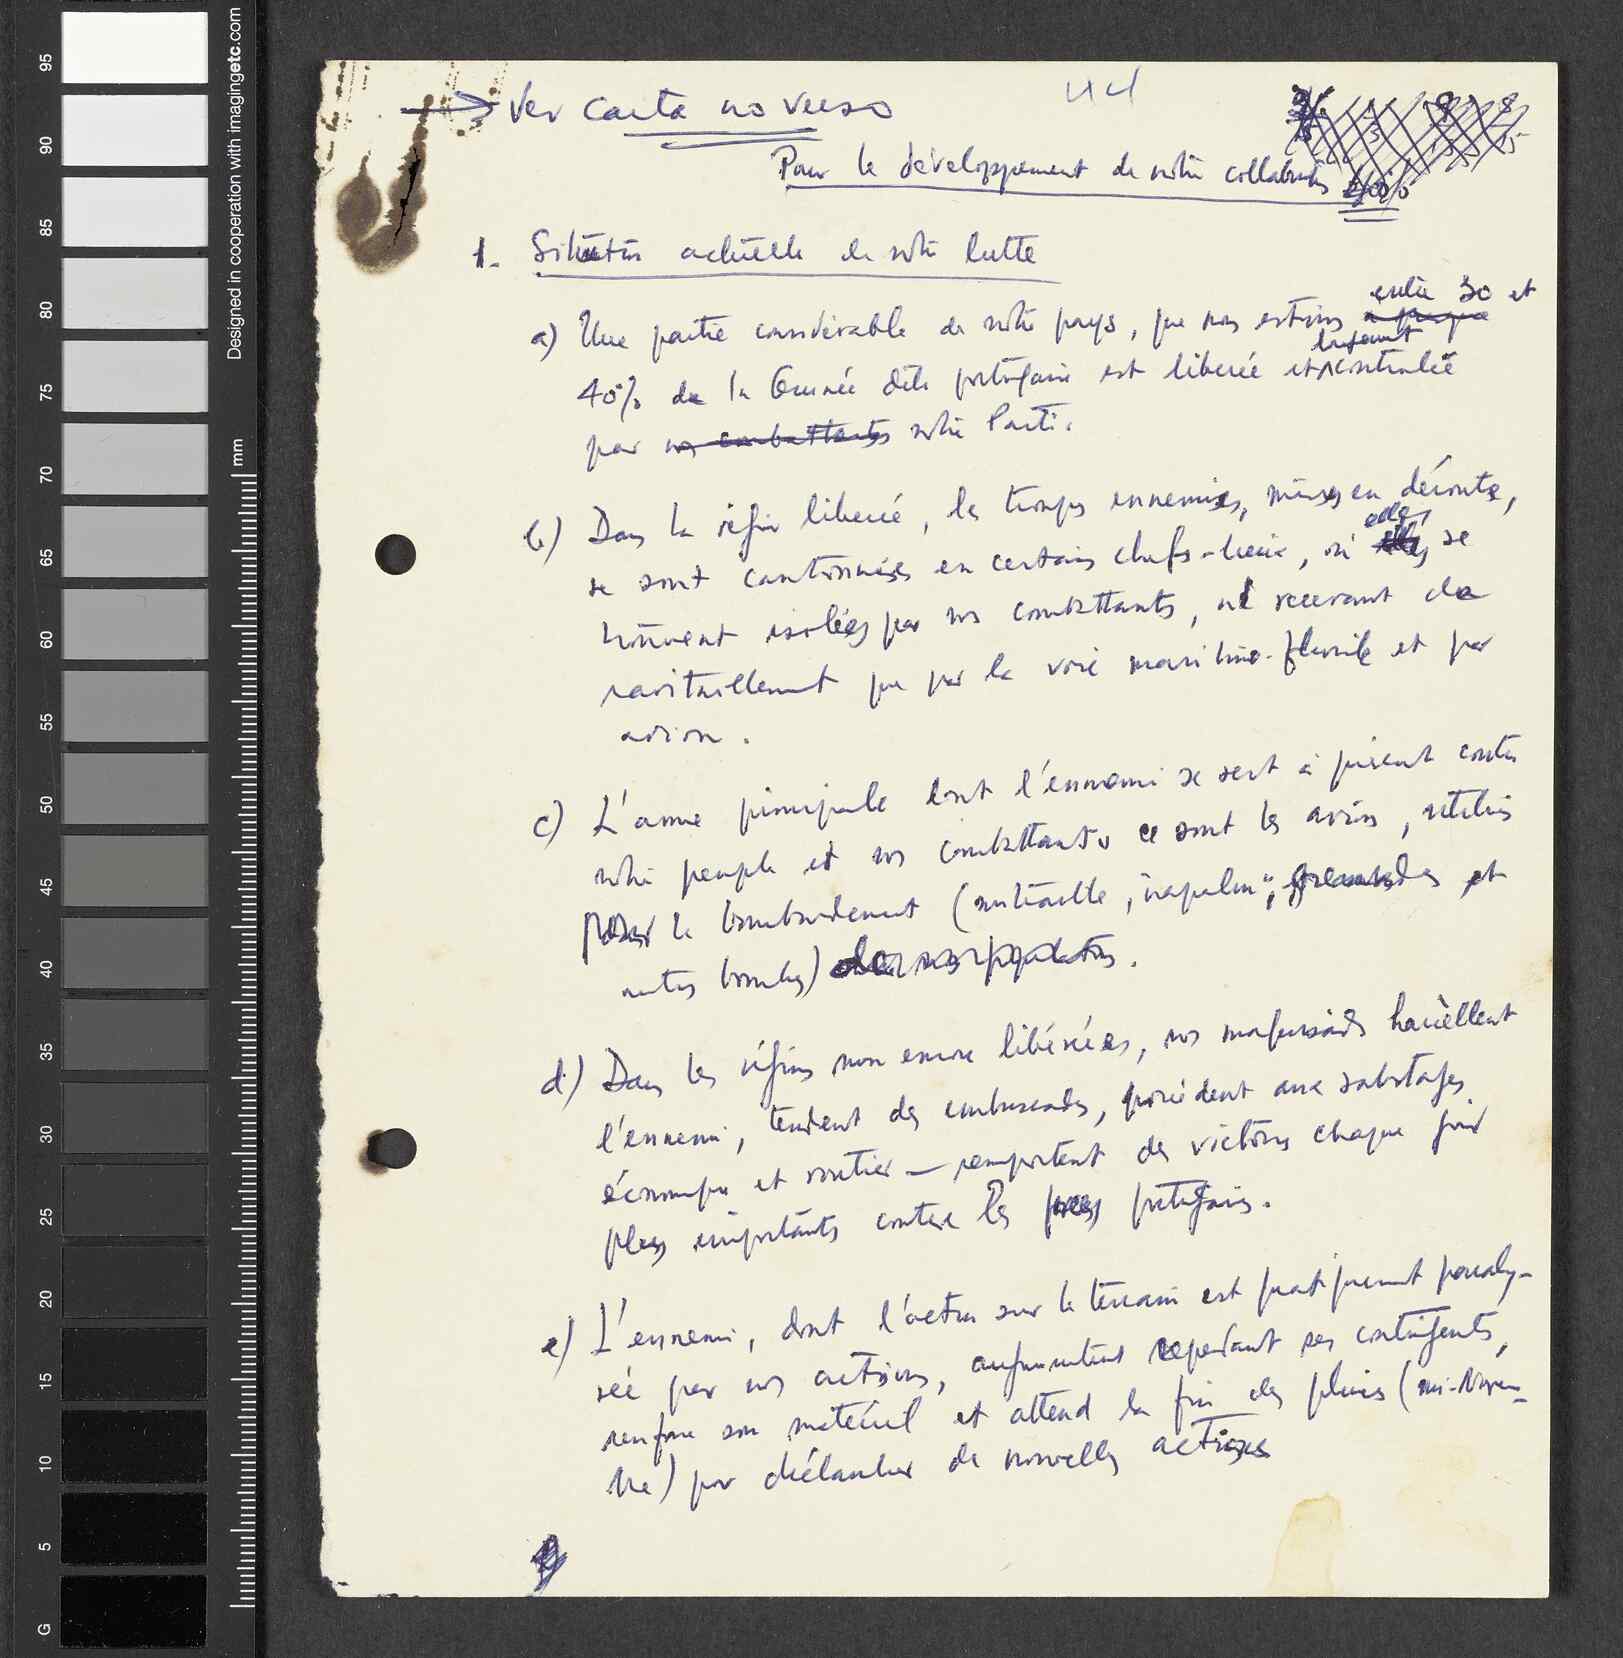 → Ver carta no verso
Pour le développement de notre collaboration
1. Situation actuelle de notre lutte
a) Une partie considérable de notre pays, que nous estimons à presque entre 30 et
40% de la Guinée dite portugaise est libérée et contrôlée
par nos combattants notre Parti.
b) Dans la région libérée, les troupes ennemies, mises en déroute,
se sont cantonnées en certains chefs-lieux, où elles se
trouvent isolées par nos combattants, ne recevant de
ravitaillement que par la voie maritime-fluviale et par
avion.
c) L'arme principale dont l'ennemi se sert à présent contre
notre peuple et nos combattants ce sont les avions, utilisés
pour le bombardement (mitraille, "napalm", grenades et
autres bombes) de nos populations.
d) Dans les régions non encore libérées, nos maquisards harcèlent
l'ennemi, tendent des embuscades, procèdent aux sabotages
économique et routier — remportent des victoires chaque jour
plus importants contre les portugais.
e) L'ennemi, dont l'action sur le terrain est pratiquement paraly-
sée par nos actions, augmentant cependant ses contingents,
renforce son matériel et attend la fin des pluies (mi-Novem-
bre) pour déclancher de nouvelles actions
95
90
85
80
75
70
65
60
55
50
45
40
35
30
25
20
15
10
5
G
mm
Designed in cooperation with imagingetc.com